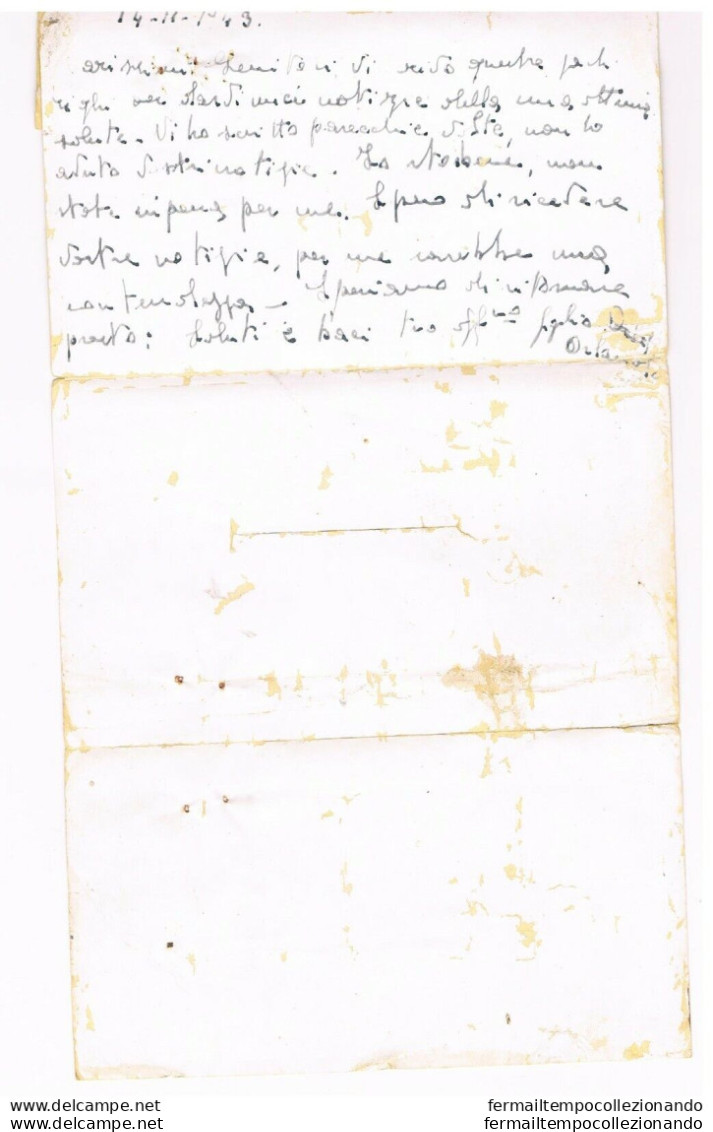 14-11-1943.
arissimi Genitori Vi scrivo queste poche
righe per darvi mie notizie della mia ottima
salute. Vi ho scritto parecchie volte, non ho
avuto vostri notizie. Io sto bene, non
state in pena per me. Spero di ricevere
vostre notizie, per me sarebbe una
contentezza - Speriamo di ritornare
presto; Saluti e baci tuo aff.mo figlio
fermailtempocollezionando
fermailtempocollezionando
fermailtempocollezionando
fermailtempocollezionando